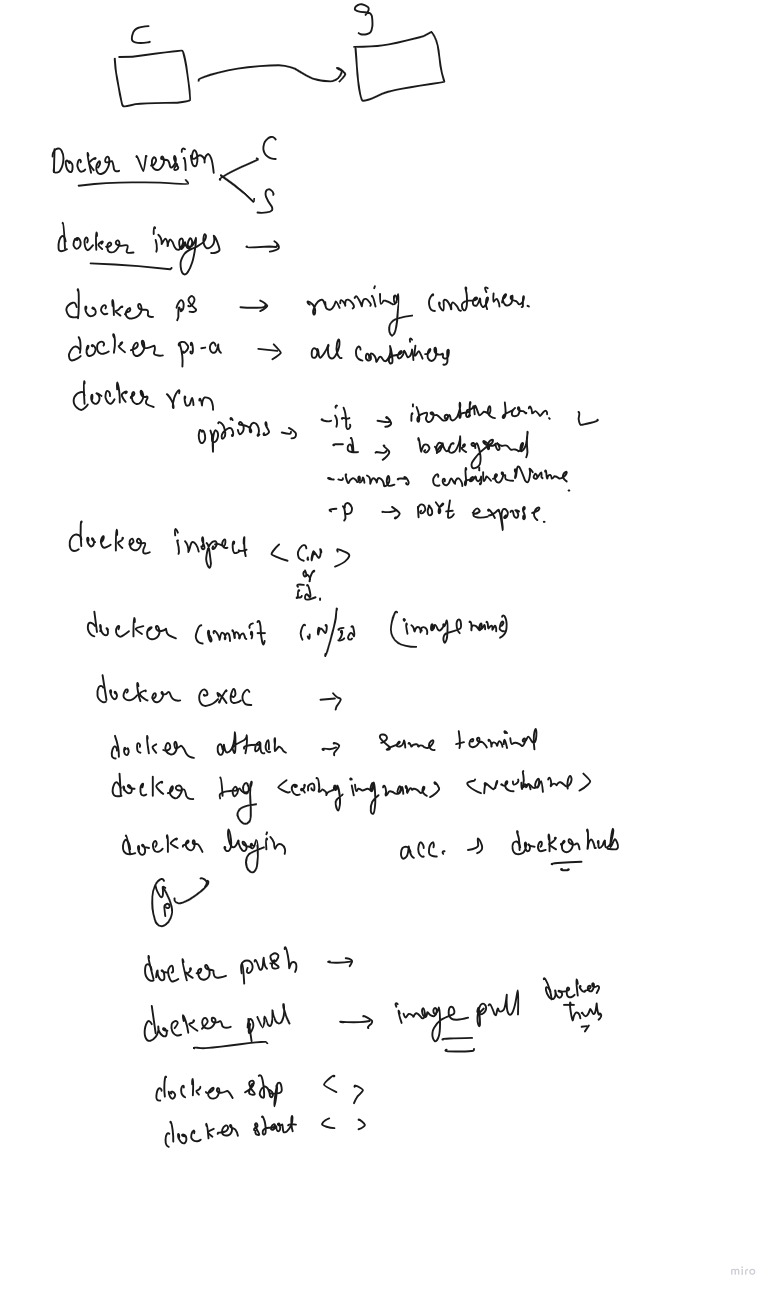 C
Docker version
C
S
docker images →
docker ps → running containers.
docker ps-a → all containers
docker run
options → -it →
-d → background
--name → container Name.
-p → port expose.
docker inspect < C.N >
or
Id.
docker commit C.N/Id (image name)
docker exec →
docker attach → same terminal
docker tag
docker login acc. → dockerhub
docker push →
docker pull → image pull docker
hub
docker stop < >
docker start < >
miro